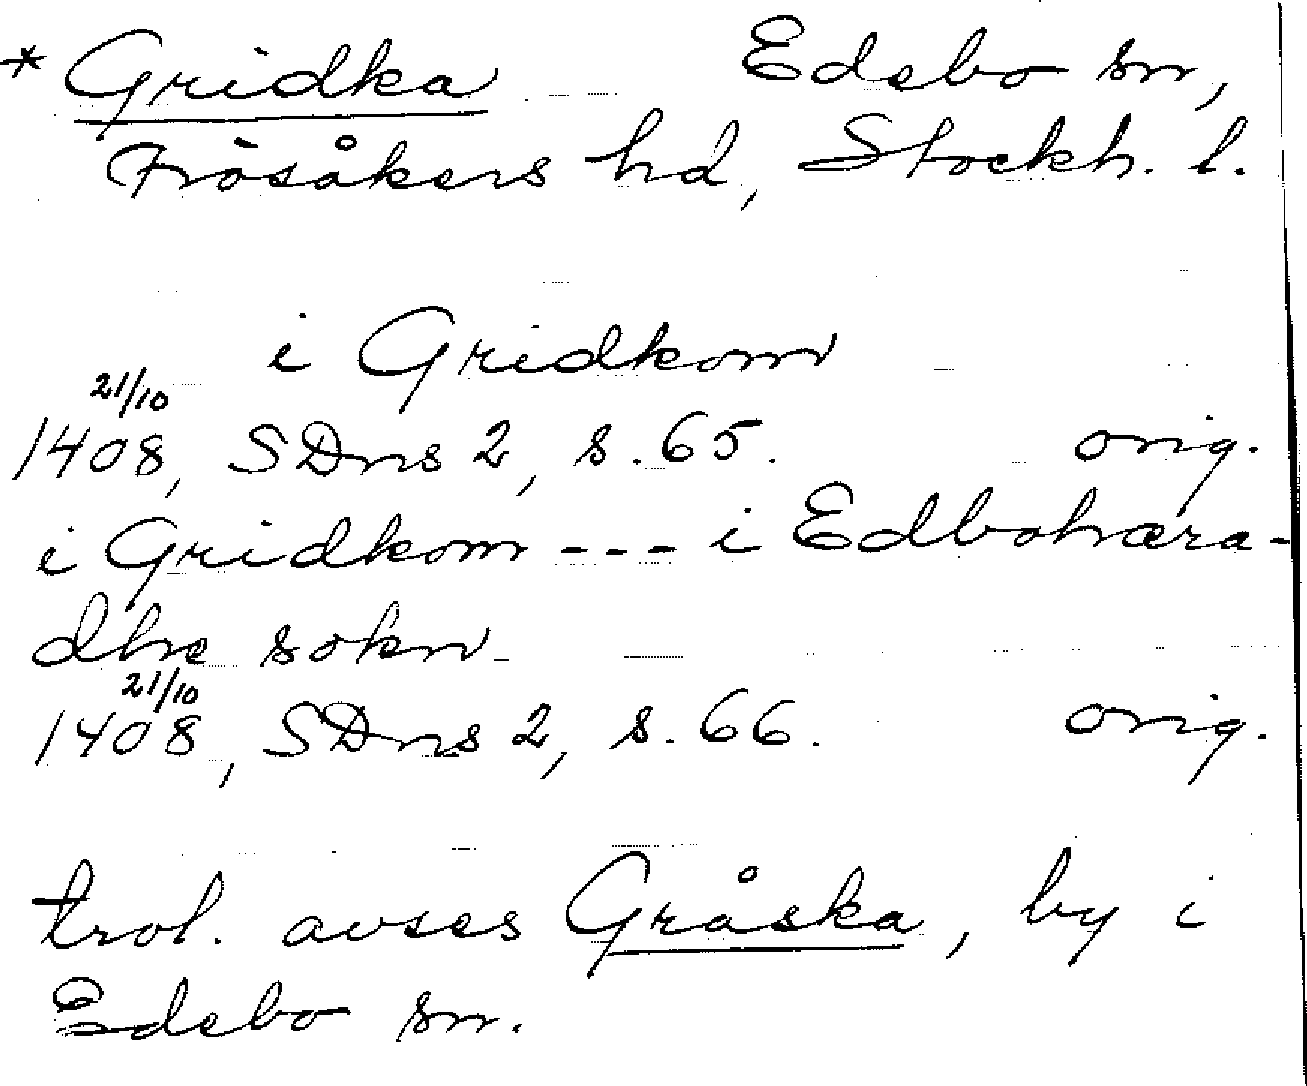 * Gridka Edebo sn,
Frösåkers hd, Stockh. l.
i Gridkom
21/10
1408, SDns 2, s. 65. orig.
i Gridkom --- i Edbohæra-
dhe sokn
21/10
1408, SDns 2, s. 66. orig.
trol. avses Gråska, by i
Edebo sn.